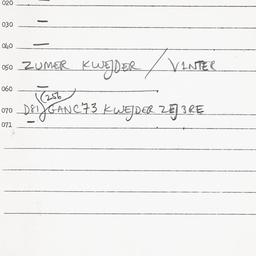 020
030
040
050 ZUMER KWEJDER / VINTER
060
(256
070 D81 GANC73 KWEJDER ZEJ3RE
071